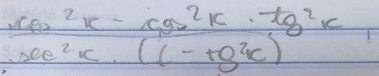 cos²x - cos²x . tg²x
sec²x . (1 - tg²x)